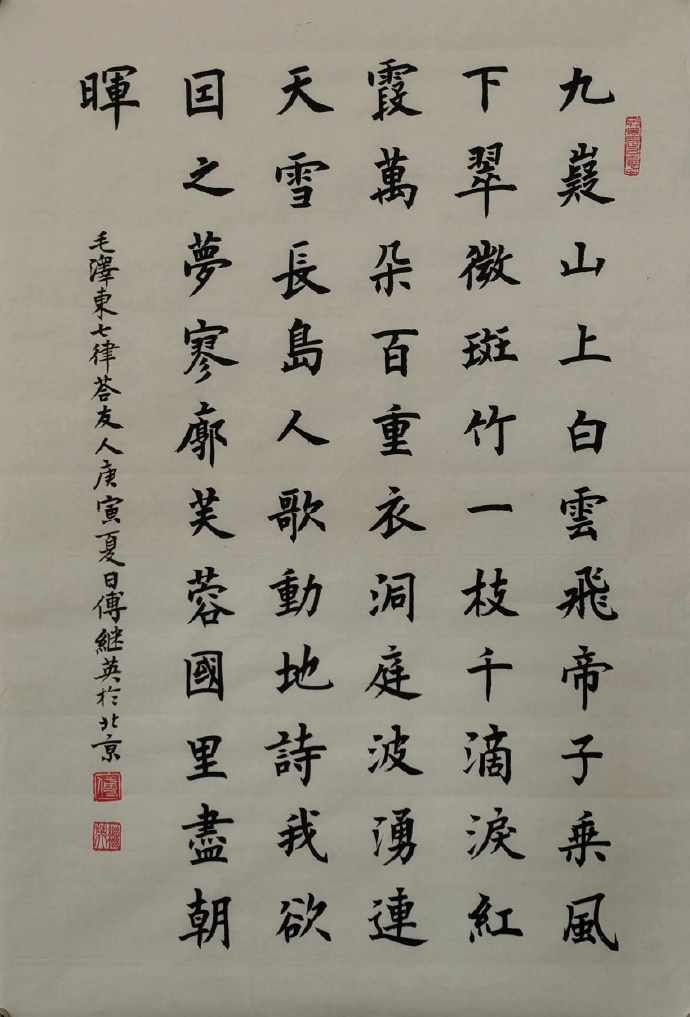 九嶷山上白雲飛帝子乗風
下翠微斑竹一枝千滴淚紅
霞萬朵百重衣洞庭波湧連
天雪長島人歌動地詩我欲
囙之夢寥廓芙蓉國里盡朝
暉
毛澤東七律荅友人庚寅夏日傅継英於北京